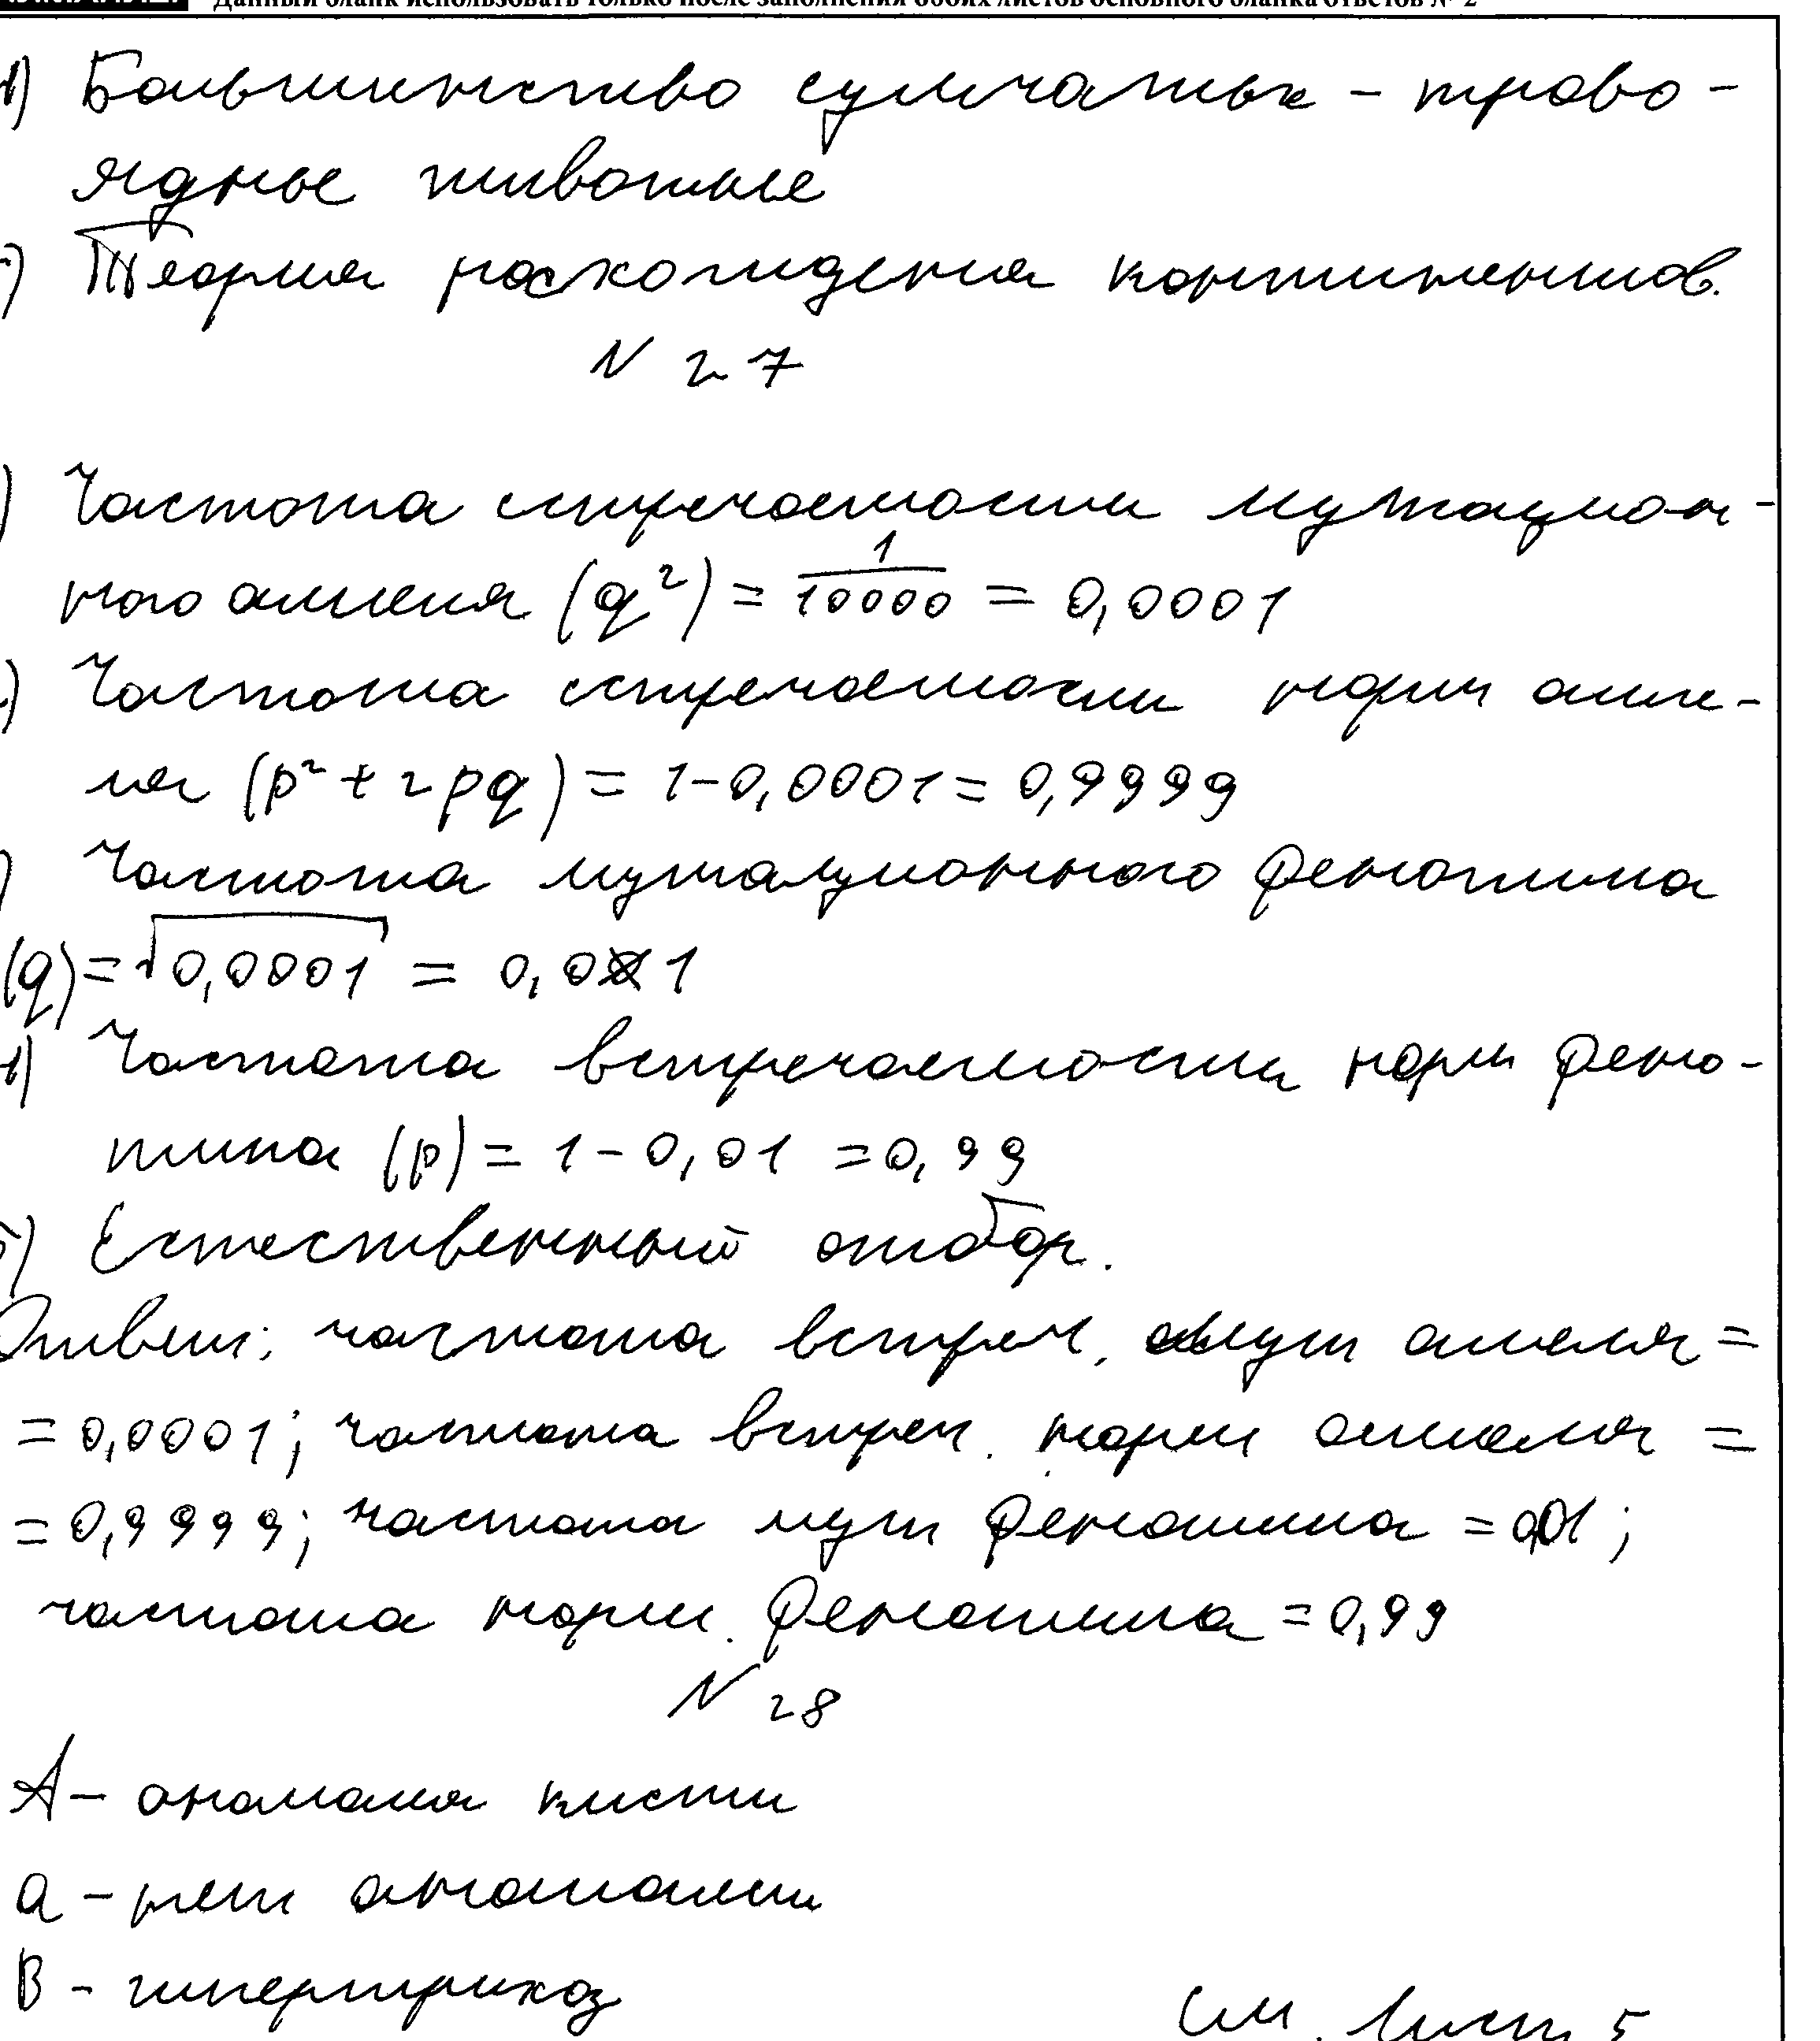 Данный бланк использовать только после заполнения обоих листов основного бланка ответов № 2
4) Большинство сумчатых - траво-
ядные животные
5) Теория расхождения континентов.
N 27
) Частота стречаемости мутацион-
ного аллеля (q²) = 1/10000 = 0,0001
) Частота стречаемости норм алле-
ля (p² + 2pq) = 1-0,0001 = 0,9999
) Частота мутационного фенотипа
(q) = √0,0001 = 0,01
4) Частота встречаемости норм фено-
типа (p) = 1 - 0,01 = 0,99
5) Естественный отбор.
Ответ: частота встреч. мут аллеля =
= 0,0001; частота встреч. норм аллеля =
= 0,9999; частота мут фенотипа = 0,01;
частота норм. фенотипа = 0,99
N 28
A - аномалия кисти
a - нет аномалии
B - гипертрихоз
см. Лист 5